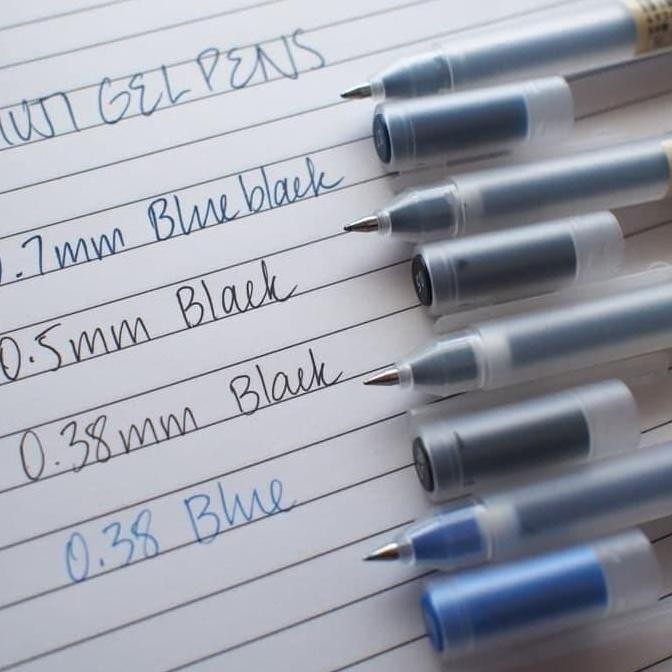 MUJI GEL PENS
0.7mm Blueblack
0.5mm Black
0.38mm Black
0.38 Blue